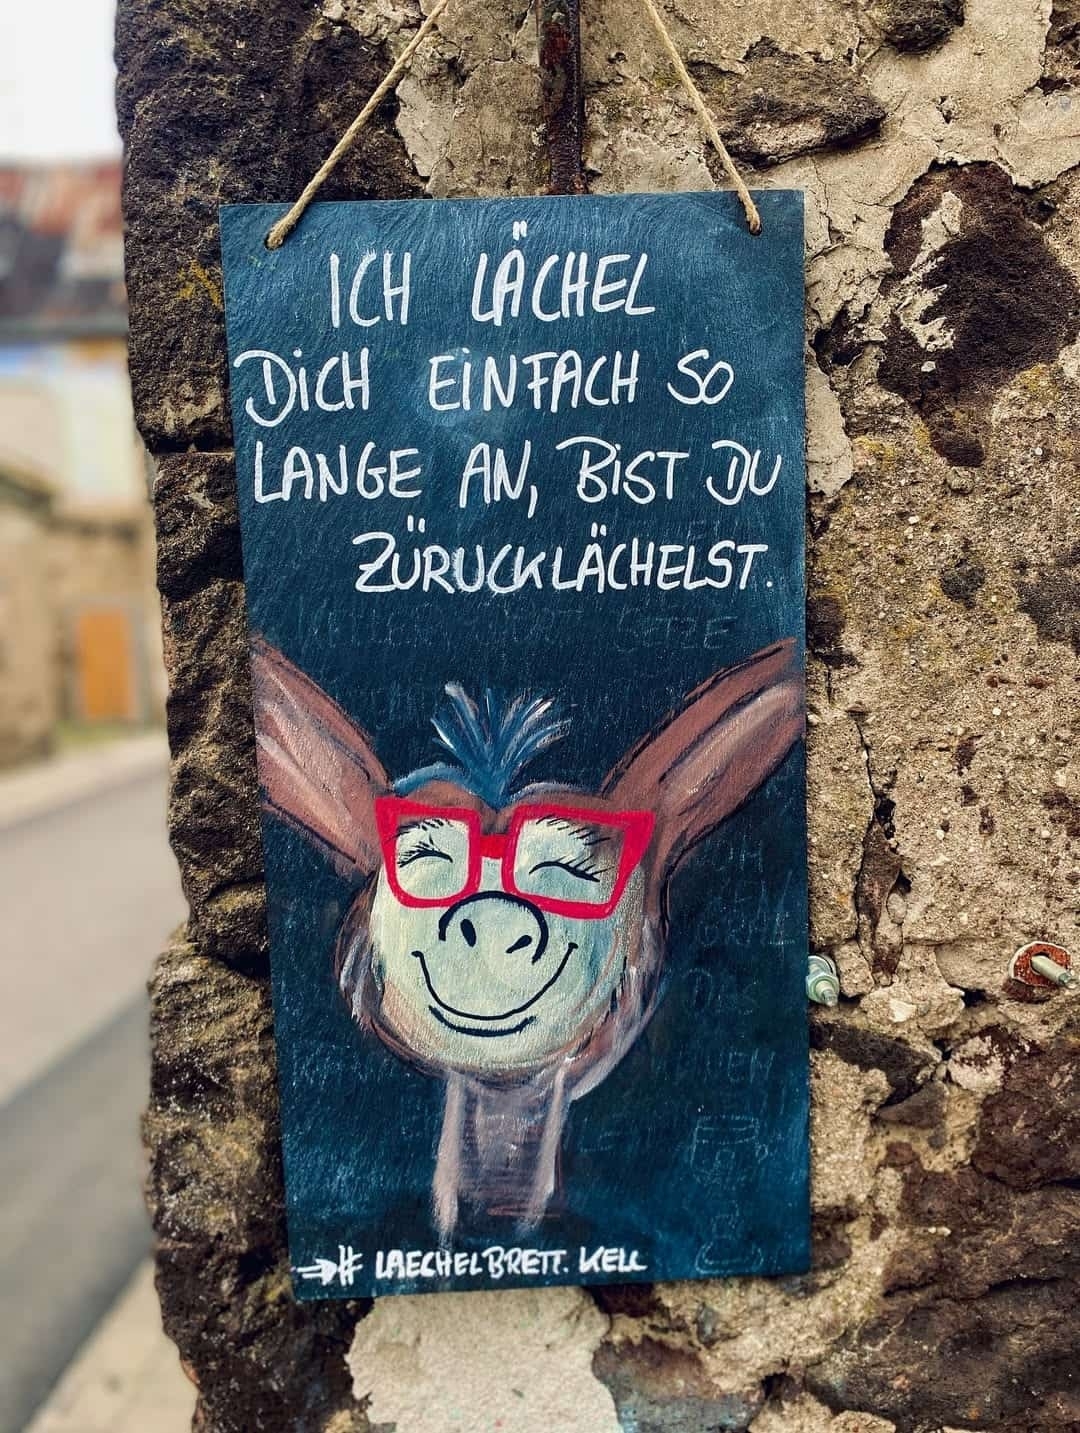 ICH LÄCHEL
DICH EINFACH SO
LANGE AN, BIST DU
ZÜRUCKLÄCHELST.
# LAECHELBRETT.KELL